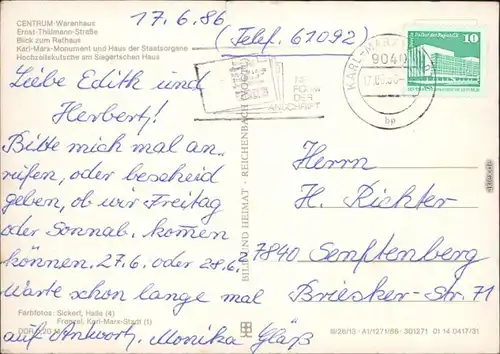 CENTRUM-Warenhaus
Ernst-Thälmann-Straße
Blick zum Rathaus
Karl-Marx-Monument und Haus der Staatsorgane
Hochzeitskutsche am Siegertschen Haus
17.6.86
(Telef. 61092)
Liebe Edith und
Herbert!
Bitte mich mal an-
rufen, oder bescheid
geben, ob wir Freitag
oder Sonnab. kommen
können. 27.6. oder 28.6.?
Warte schon lange mal
auf Antwort. Monika Gläß
Farbfotos: Sickert, Halle (4)
Frenzel, Karl-Marx-Stadt (1)
DDR
BILD UND HEIMAT · REICHENBACH (VOGTL)
III/26/13 · A1/1271/86 · 301271 01 14 0417/31
DER
ANSCHRIFT
KARL-MARX
9040
17.
bp
Palast der Republik
10
Herrn
H. Richter
7840 Senftenberg
Briesker-Str. 71